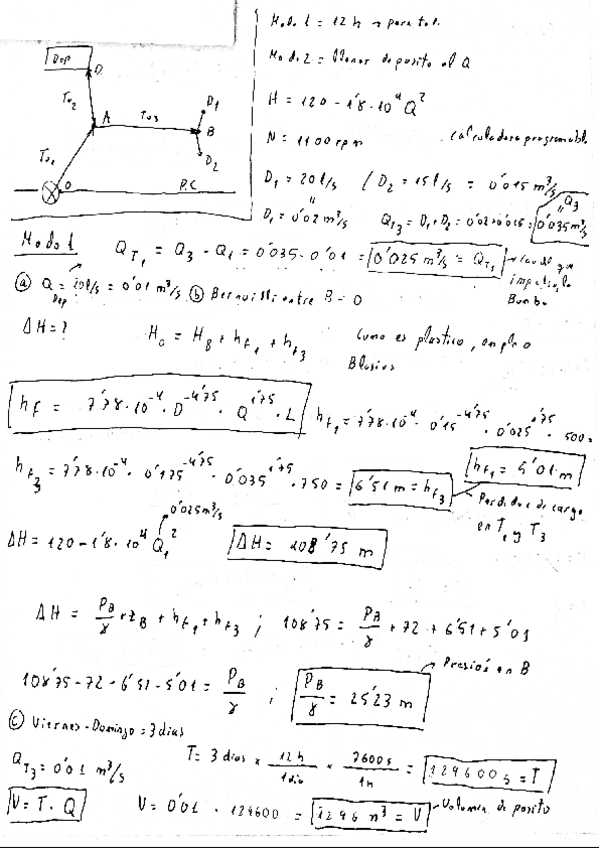 Dep
D
Tu2
A
Tu3
D1
B
D2
Tu1
O
P.C
Modo 1 = 12 h → para todo
Modo 2 = Llenar deposito al Q
H = 120 - 1'8·10^4 Q^2
N = 1100 rpm
calculadora programable
D1 = 20 l/s / D2 = 15 l/s = 0'015 m^3/s
D1 = 0'02 m^3/s
QT3 = D1 + D2 = 0'02 + 0'015 = 0'035 m^3/s
Q3
Modo 1
QT1 = Q3 - Q1 = 0'035 - 0'01 = 0'025 m^3/s = QT1
caudal que impulsa la Bomba
a) Q Dep = 10 l/s = 0'01 m^3/s b) Bernuilli entre B - O
ΔH = ?
Ho = HB + hf1 + hf3
Como es plastico, empleo
Blasius
hf = 7'78·10^-4 · D^-4'75 · Q^1'75 · L
hf1 = 7'78·10^-4 · 0'15^-4'75 · 0'025^1'75 · 500 =
hf1 = 5'01 m
hf3 = 7'78·10^-4 · 0'175^-4'75 · 0'035^1'75 · 750 = 6'51 m = hf3
Perdidas de carga
en T1 y T3
0'025 m^3/s
ΔH = 120 - 1'8·10^4 Q1^2
ΔH = 108'75 m
ΔH = PB/γ + zB + hf1 + hf3 ; 108'75 = PB/γ + 72 + 6'51 + 5'01
108'75 - 72 - 6'51 - 5'01 = PB/γ ; PB/γ = 25'23 m
Presión en B
c) Viernes - Domingo = 3 dias
QT3 = 0'01 m^3/s
T = 3 dias × 12 h/1 dia × 3600 s/1 h = 129600 s = T
V = T · Q
V = 0'01 · 129600 = 1296 m^3 = V
Volumen deposito